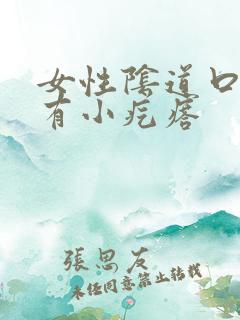 女性陰道口
有小疙瘩
張思友
未经同意禁止转载